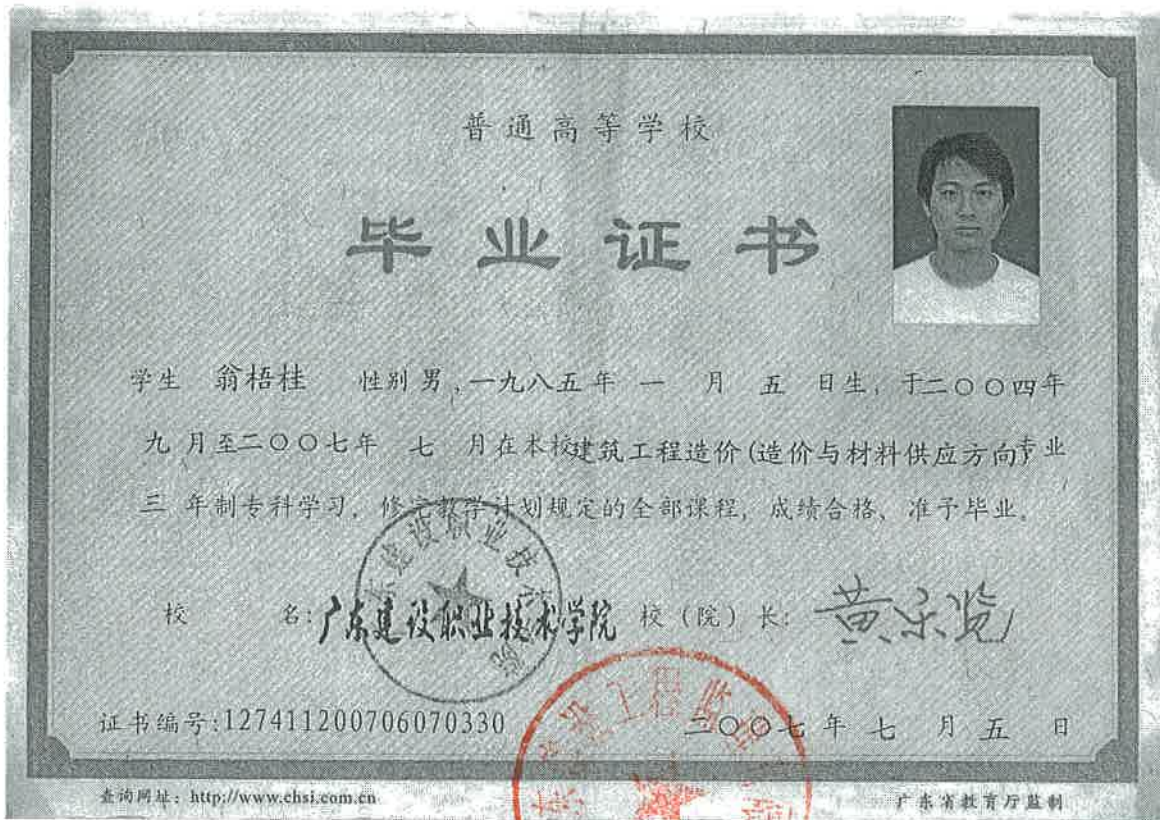 普通高等学校
毕业证书
学生 翁梧桂 性别 男,一九八五年 一 月 五 日生,于二〇〇四年
九 月至二〇〇七年 七 月在本校建筑工程造价(造价与材料供应方向)专业
三 年制专科学习,修完教学计划规定的全部课程,成绩合格、准予毕业。
校 名:广东建设职业技术学院 校(院)长:
证书编号:127411200706070330 二〇〇七年 七 月 五 日
查询网址:http://www.chsi.com.cn 广东省教育厅监制